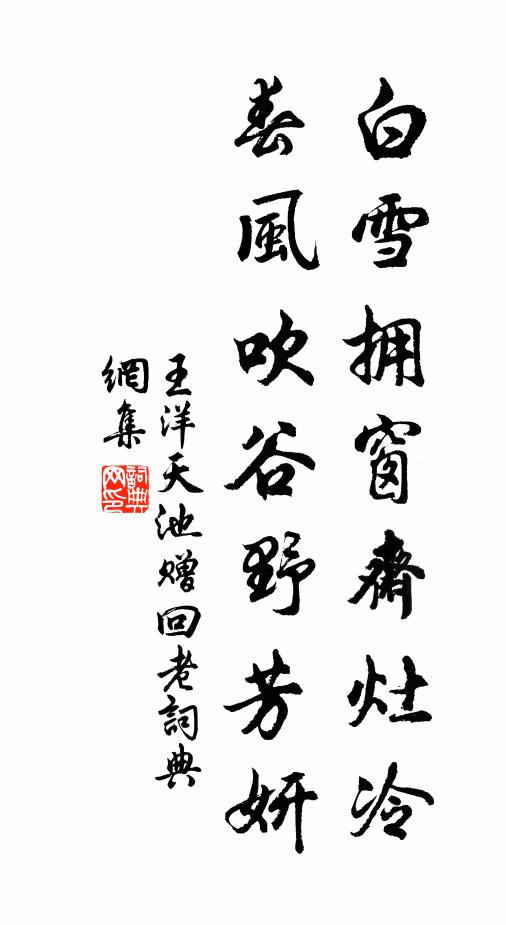 白雪拥窗齋灶冷
春風吹谷野芳妍
王洋天池赠回老詞典
網集
詞典
网印